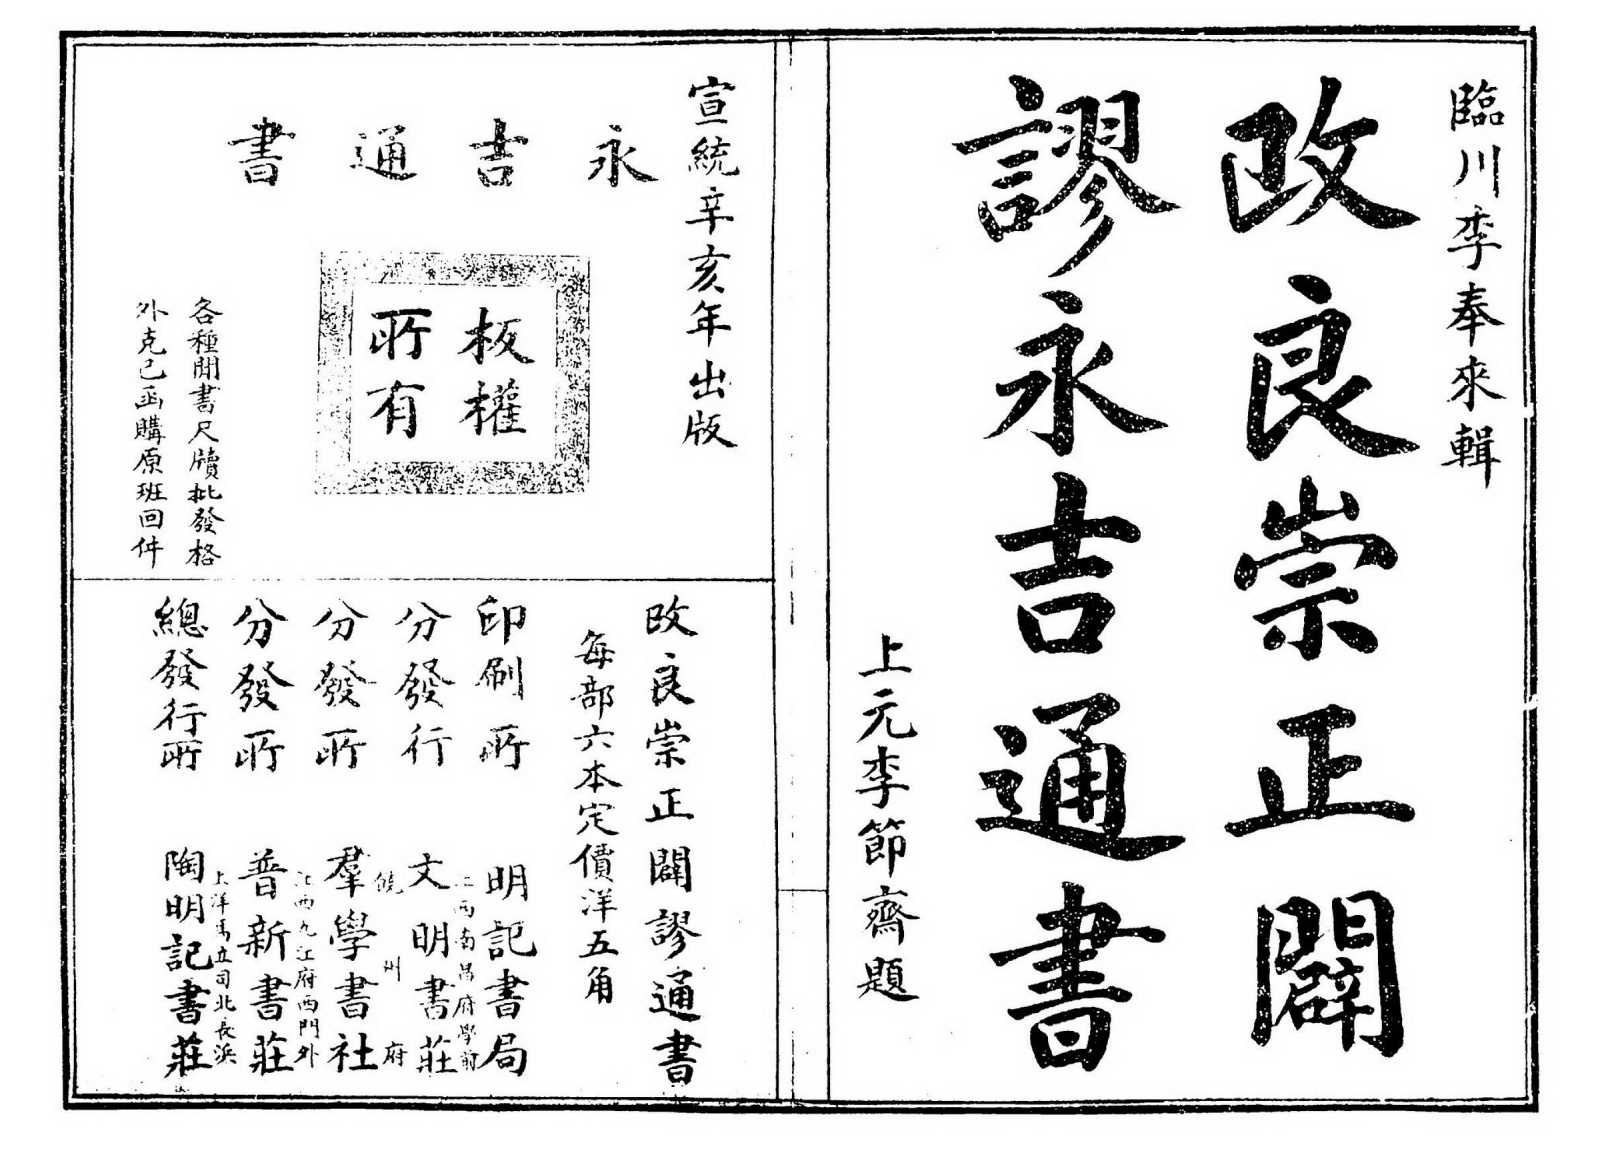 臨川李奉來輯
改良崇正闢
謬永吉通書
上元李節齋題
宣統辛亥年出版
永吉通書
板權
所有
各種閒書尺牘批發格
外克己函購原班回件
改良崇正闢謬通書
每部六本定價洋五角
印刷所 明記書局
江西南昌府學前
分發行 文明書莊
饒州府
分發所 羣學書社
江西九江府西門外
分發所 普新書莊
上洋馬立司北長浜
總發行所 陶明記書莊